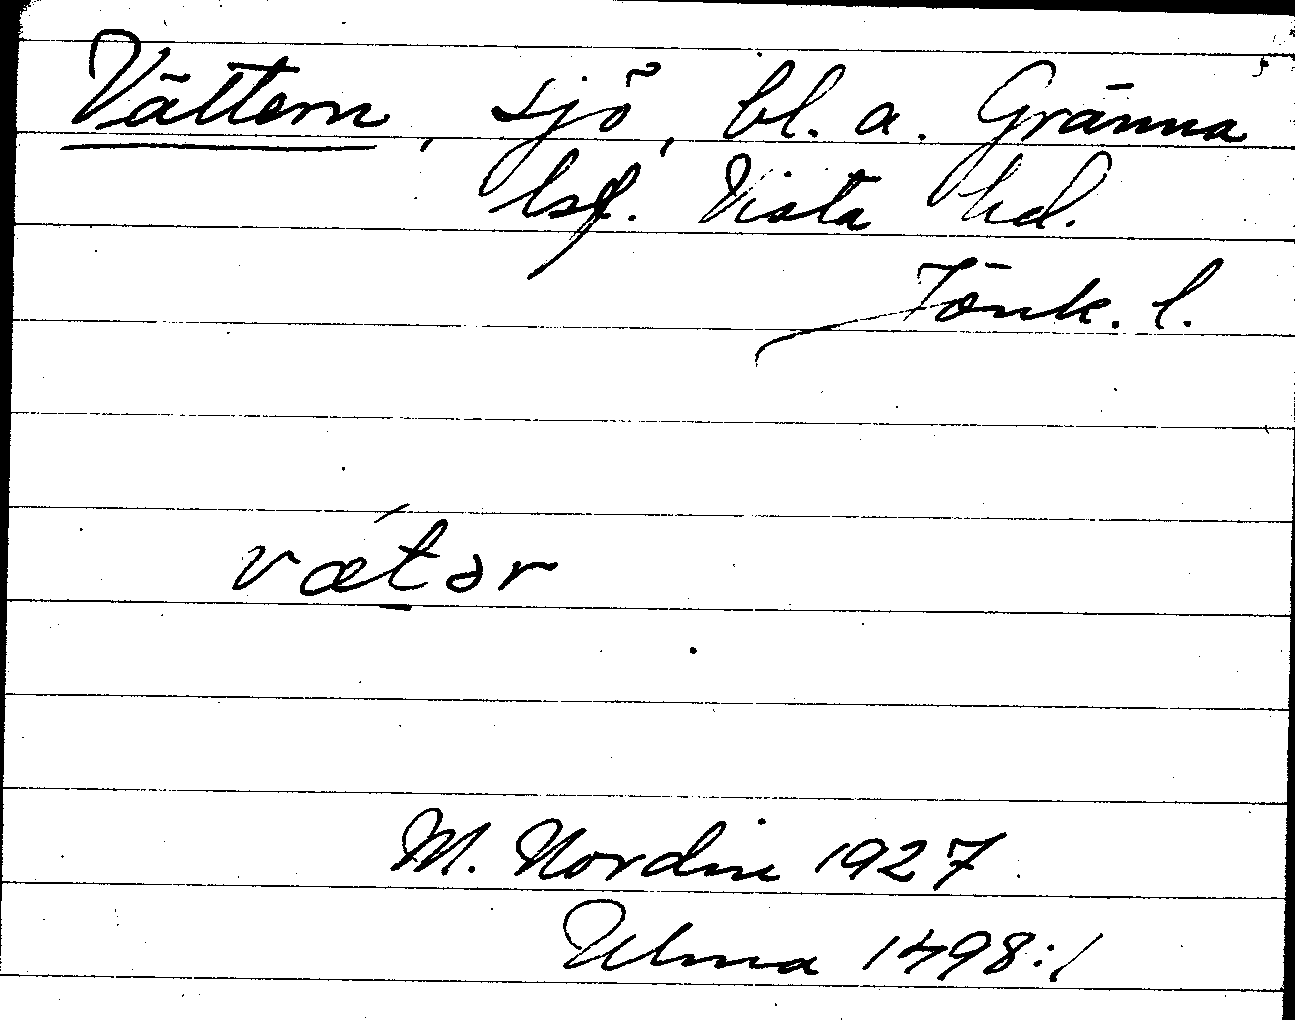 Vättern, sjö, bl. a. Gränna
lsf. Vista hd.
Jönk. l.
vǽt̠ər
M. Nordin 1927
Ulma 1498:1